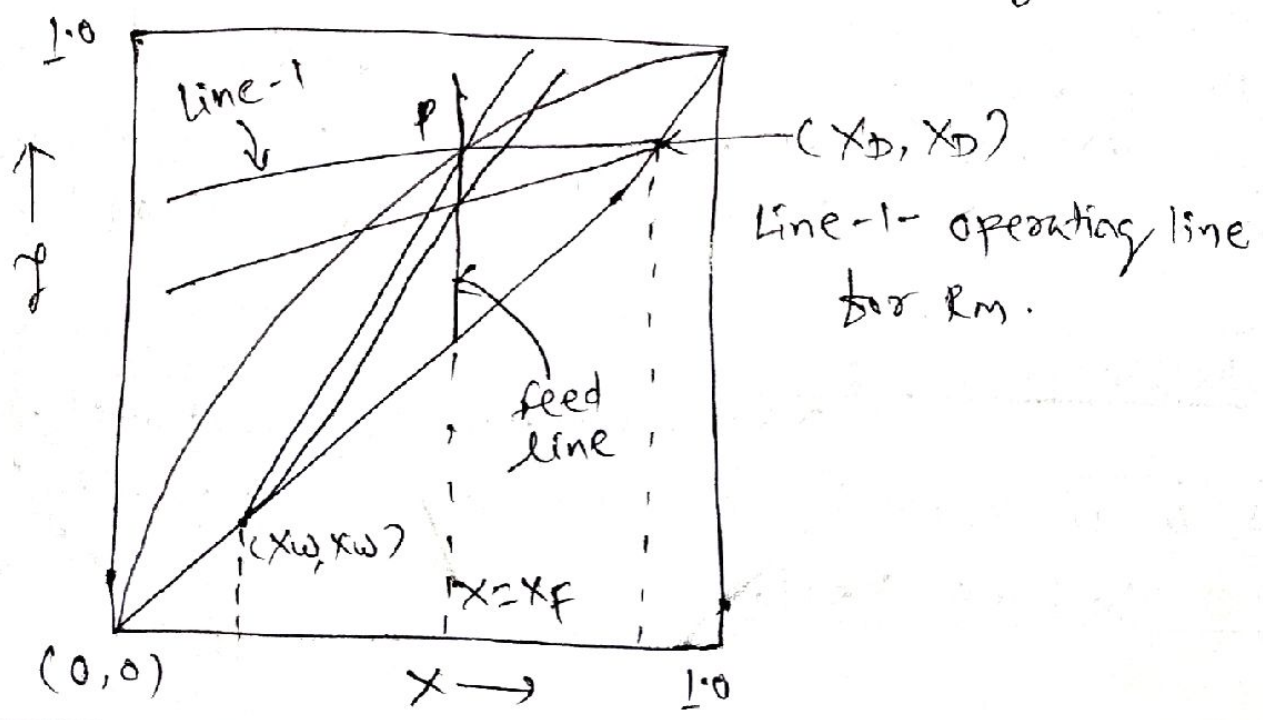 1.0
Line-1
P
(XD, XD)
Line-1- operating line
for Rm.
y
feed
line
(xw, xw)
X=XF
(0,0)
X
1.0